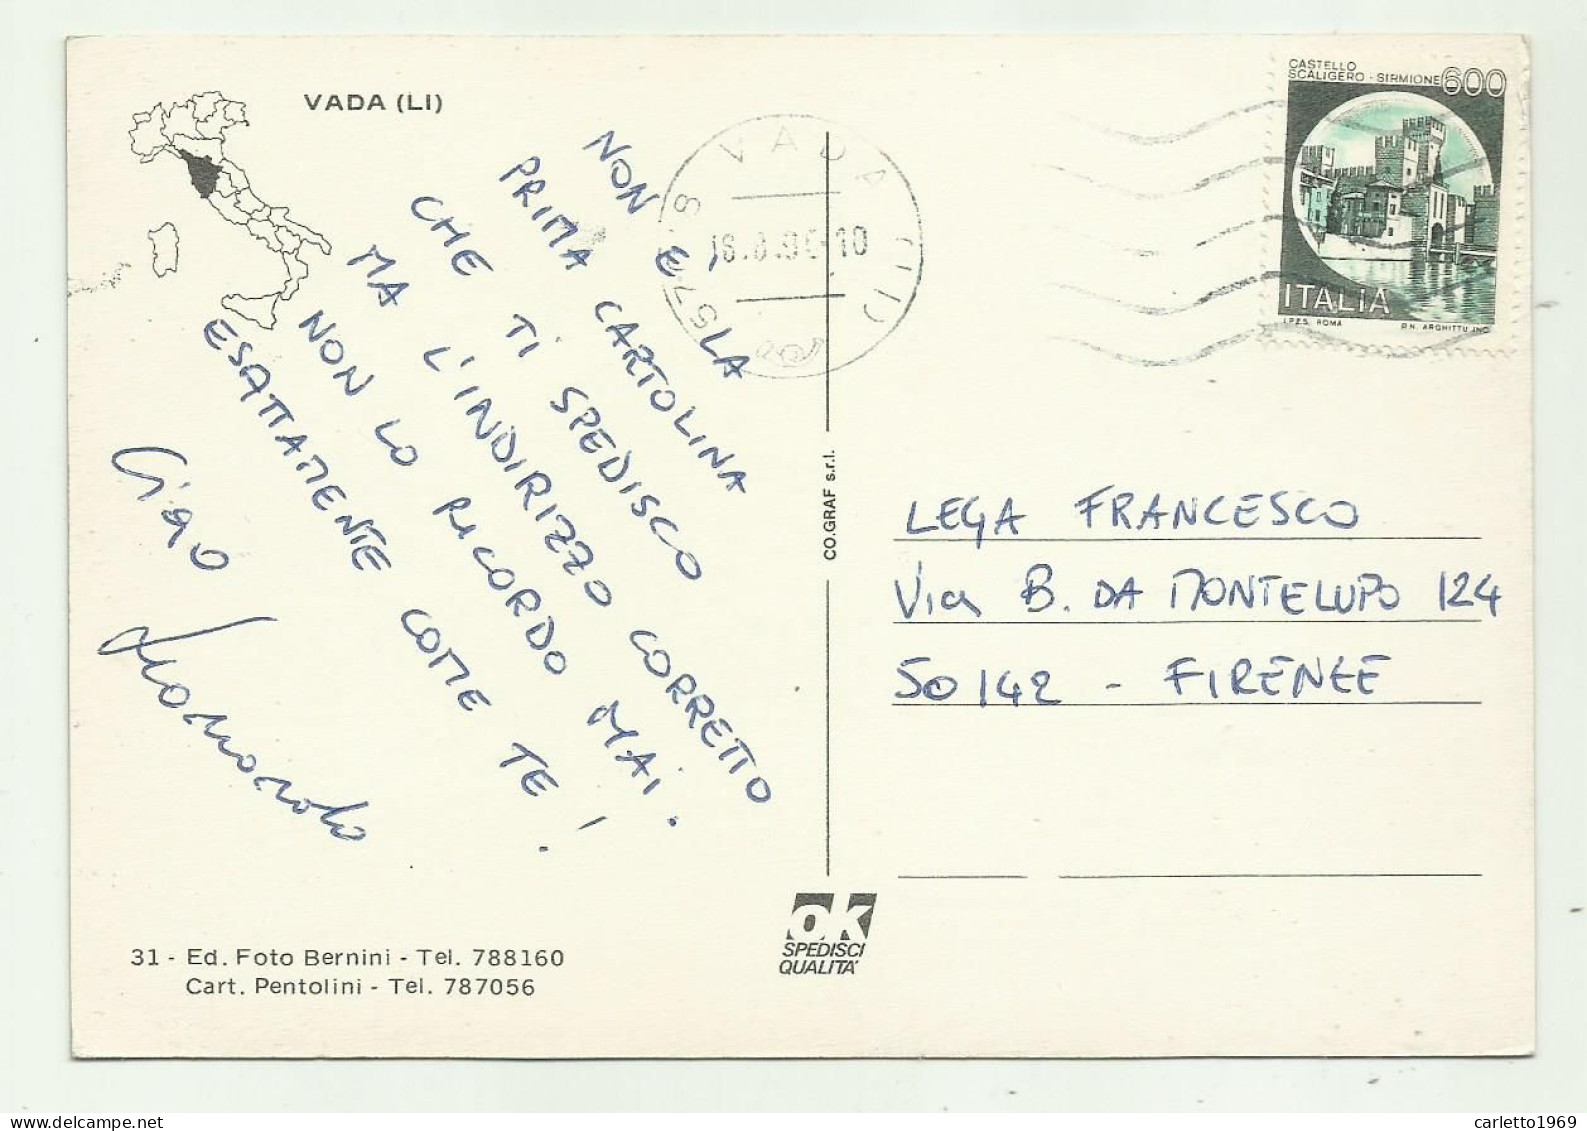 VADA (LI)
CASTELLO
SCALIGERO - SIRMIONE 600
ITALIA
I.P.Z.S. ROMA P.N. ARGHITTU INC.
VADA (LI)
57018
NON E' LA
PRIMA CARTOLINA
CHE TI SPEDISCO
MA L'INDIRIZZO CORRETTO
NON LO RICORDO MAI.
ESATTAMENTE COME TE!
Ciao
CO.GRAF s.r.l.
LEGA FRANCESCO
Via B. DA MONTELUPO 124
50142 - FIRENZE
31 - Ed. Foto Bernini - Tel. 788160
Cart. Pentolini - Tel. 787056
ok
SPEDISCI
QUALITA'
carletto1969